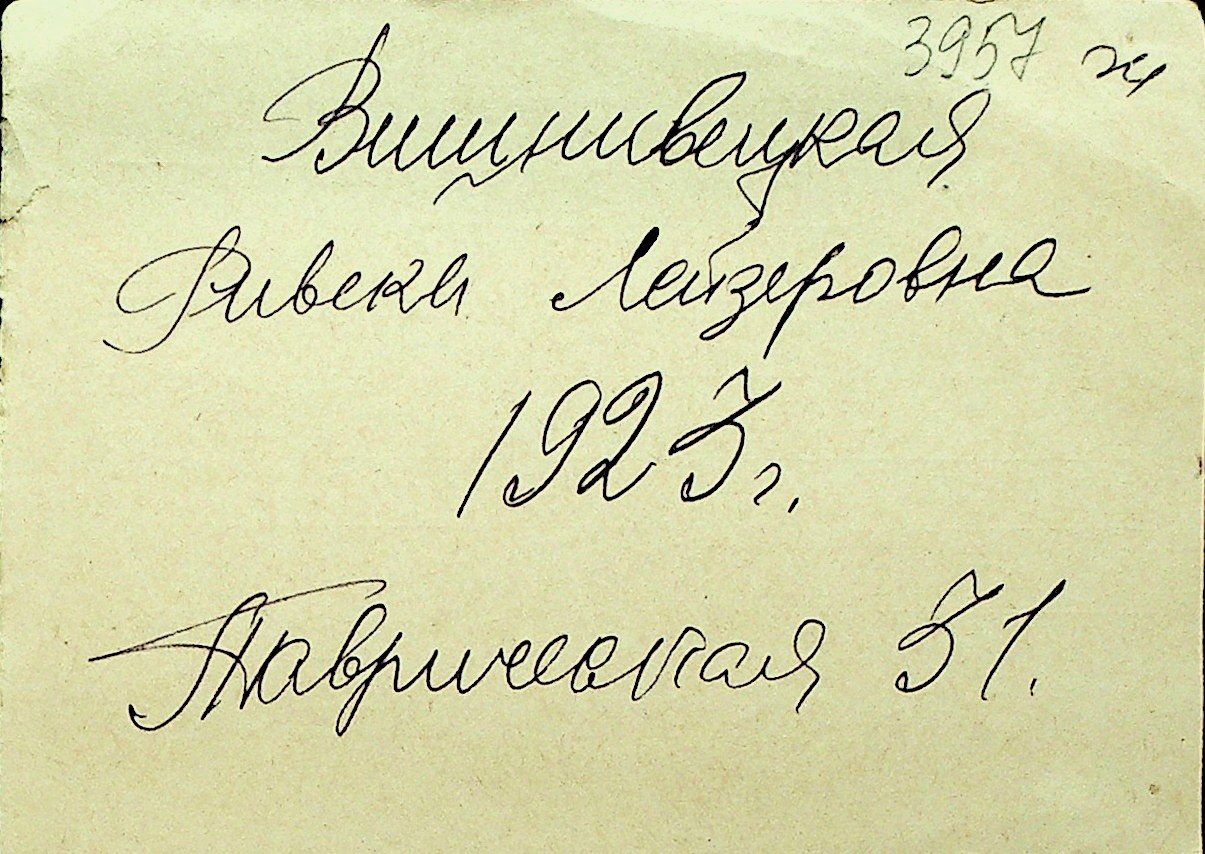 3957 ж
Вишнивецкая
Ривека Лейзеровна
1923г.
Таврическая 31.